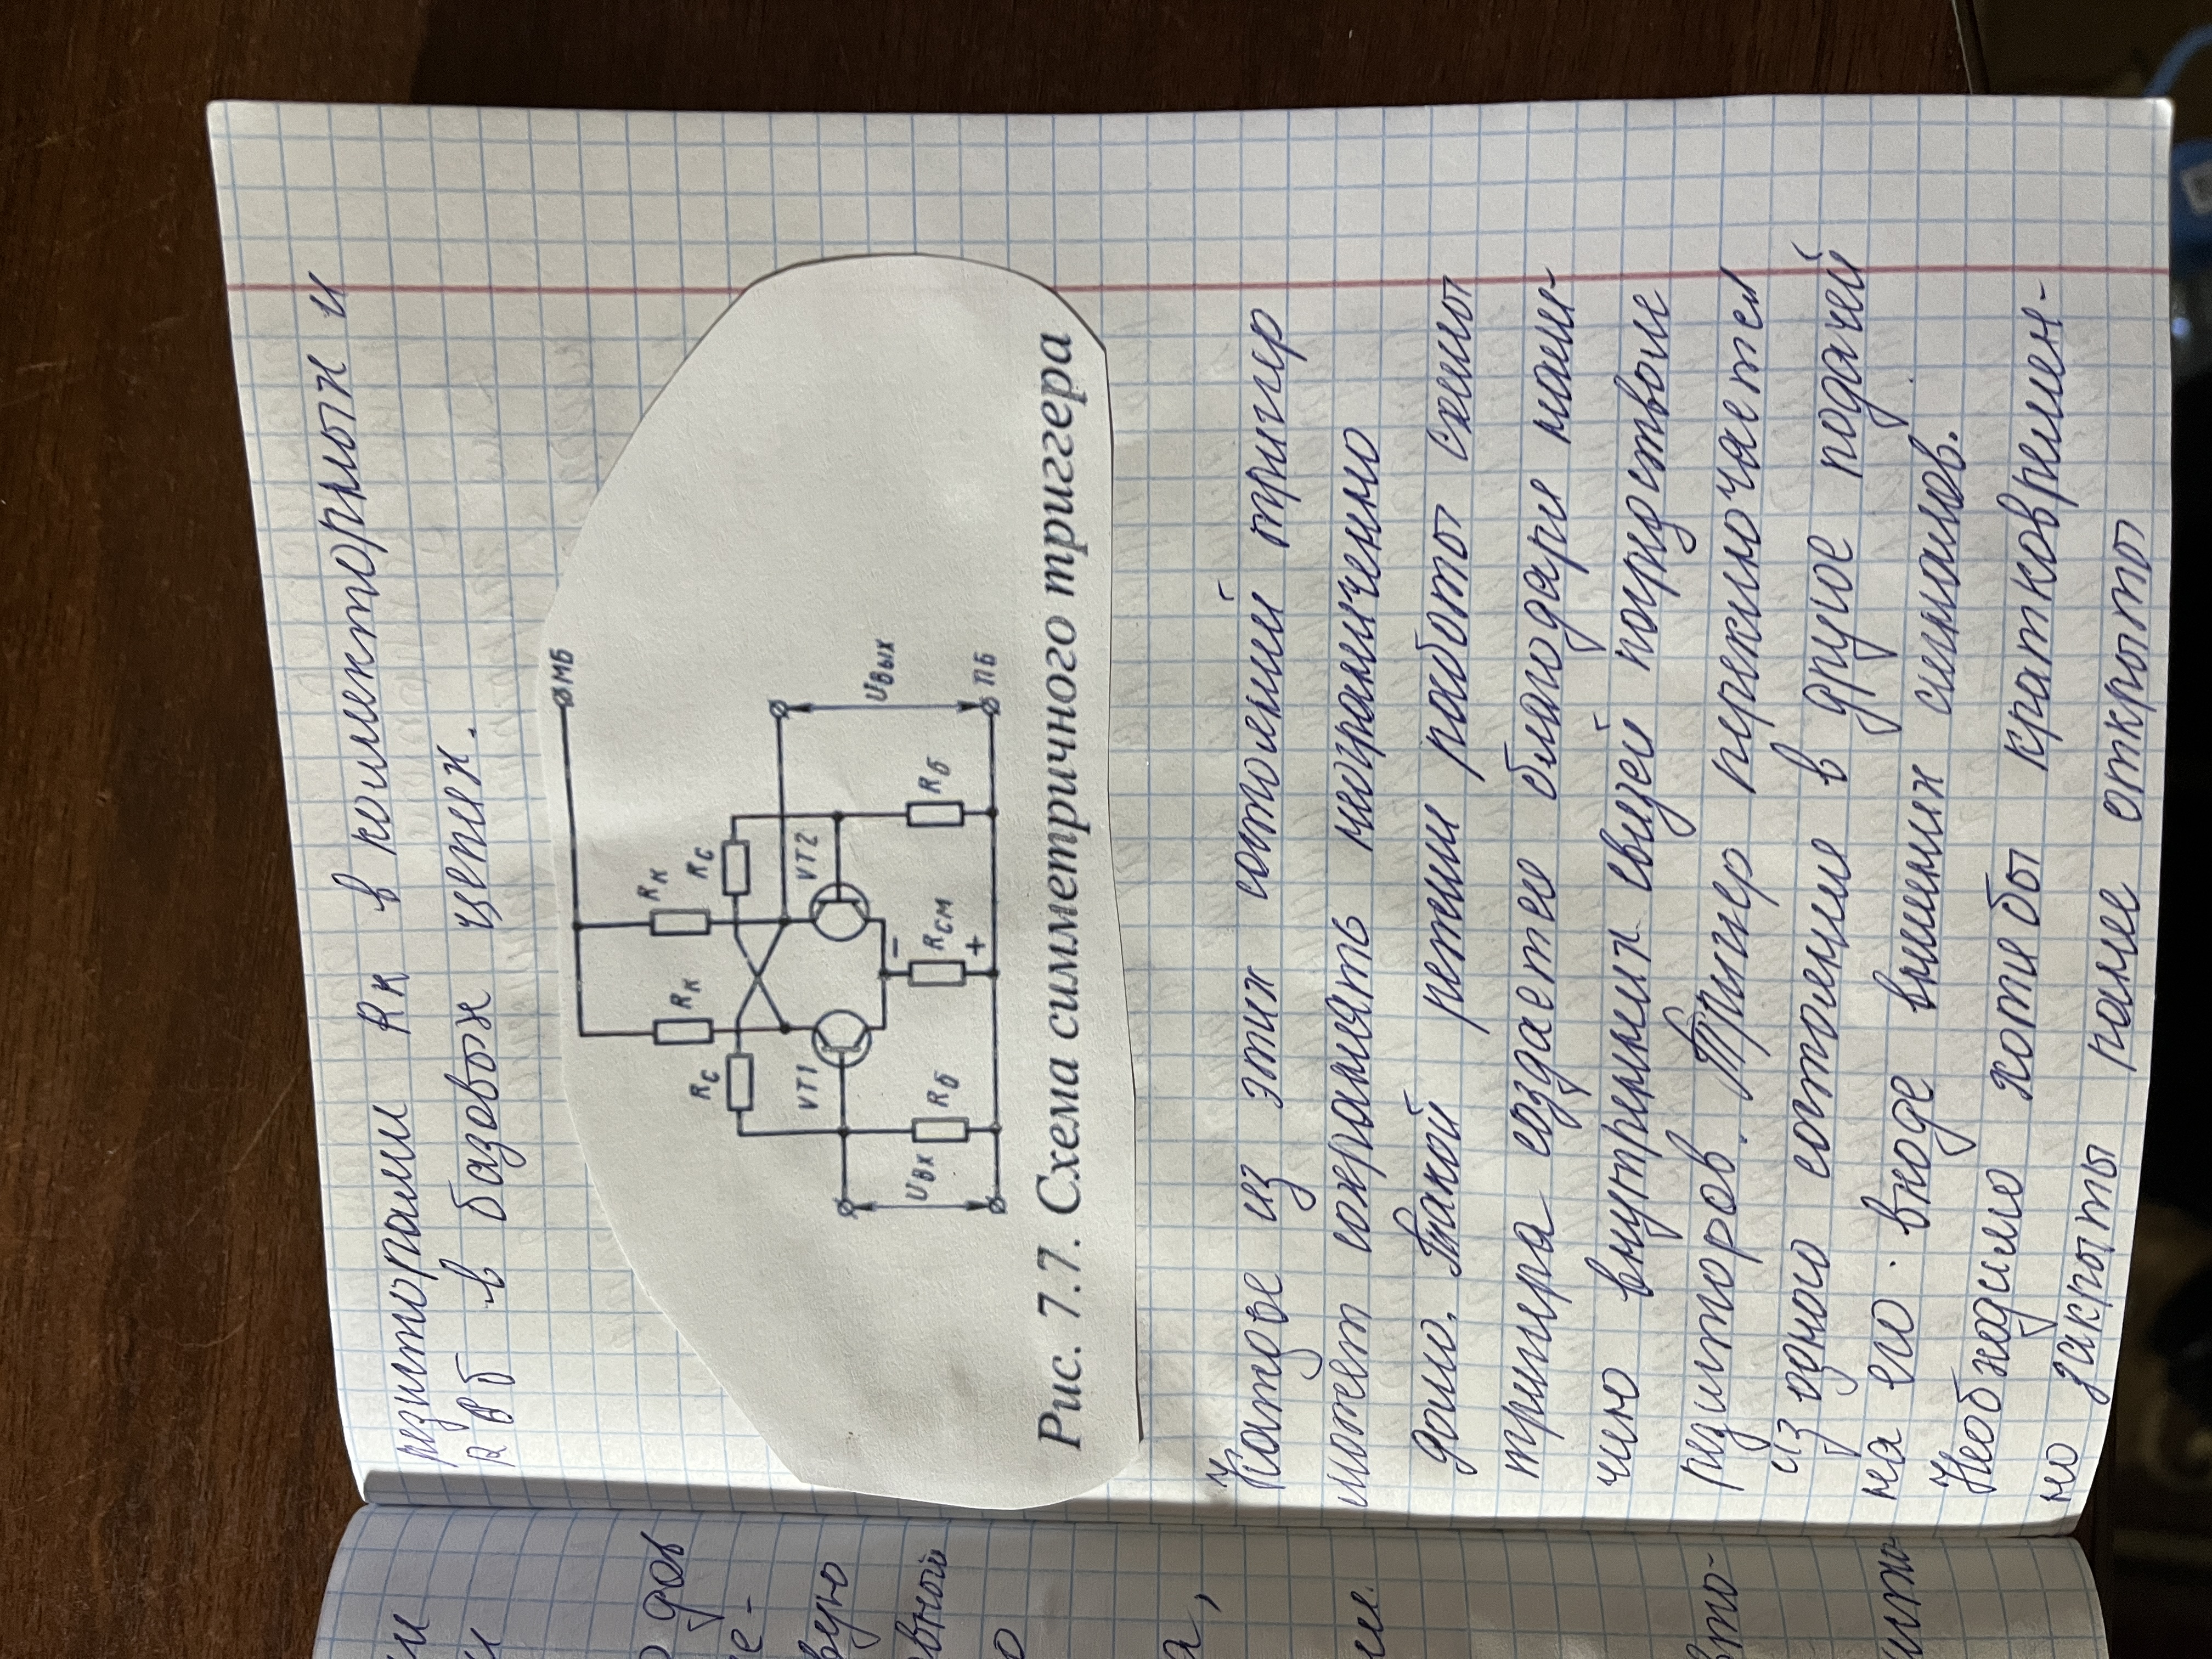 резиторами Rк в коллекторных и
RВб в базовых цепях.
⌀МБ
Rк Rк
Rс Rс
VT1 VT2
Uвх Rб Rсм Rб Uвых
− +
ПБ
Рис. 7.7. Схема симметричного триггера
Каждое из этих состояний тригер
может сохранять неограниченно
долго. Такой режим работы схемы
тригера создается благодаря нали-
чию внутренних связей посредством
резиторов. Тригер переключается
из одного состояние в другое подачей
на его входе внешних сигналов.
Необходимо хотя бы кратковремен-
но закрыты ранее открыты